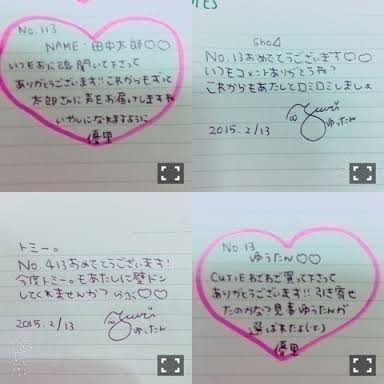 No. 113
NAME 田中太郎♡♡
いつもお 聴いて下さって
ありがとうございます!! これからもずっと
太郎さんに声をお届けしますね
いやしになれますように
優里
sho⊿
No.13おめでとうございます♡♡
いつもコメントありがとう
これからもあたしと しましょ
2015.2/13
Yuuri
ゆったん
トミー。
No.413おめでとうございます!
今度トミー。もあたしに壁ドン
してくれませんか? ♡♡
2015.2/13
Yuuri
ゆったん
No.13
ゆうたん♡♡
CUTiEわざわざ買って下さって
ありがとうございます!! 引き寄せ
たのかな? 見事ゆうたんが
選ばれたよ
優里